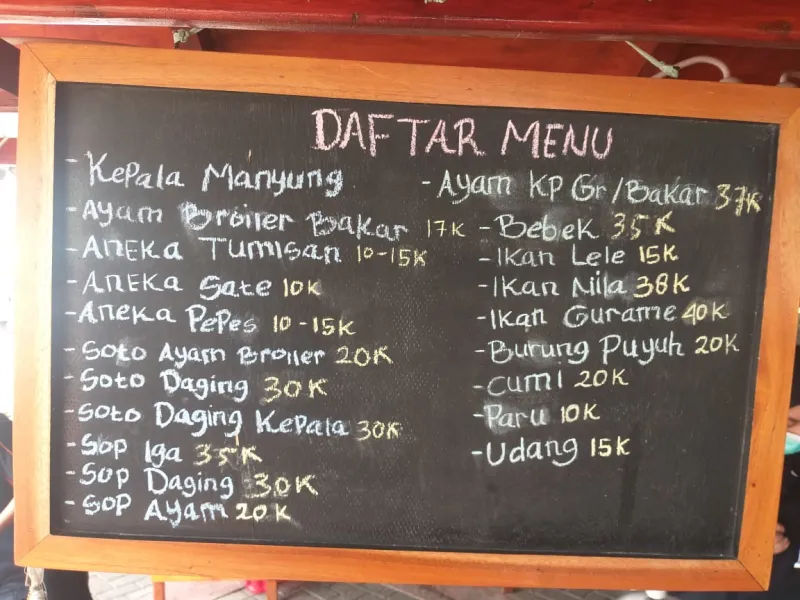 DAFTAR MENU
- Kepala Manyung
- Ayam Broiler Bakar 17K
- Aneka Tumisan 10-15K
- Aneka Sate 10K
- Aneka Pepes 10-15K
- Soto Ayam Broiler 20K
- Soto Daging 30K
- Soto Daging Kepala 30K
- Sop Iga 35K
- Sop Daging 30K
- Sop Ayam 20K
- Ayam KP Gr/Bakar 37K
- Bebek 35K
- Ikan Lele 15K
- Ikan Nila 38K
- Ikan Gurame 40K
- Burung Puyuh 20K
- Cumi 20K
- Paru 10K
- Udang 15K